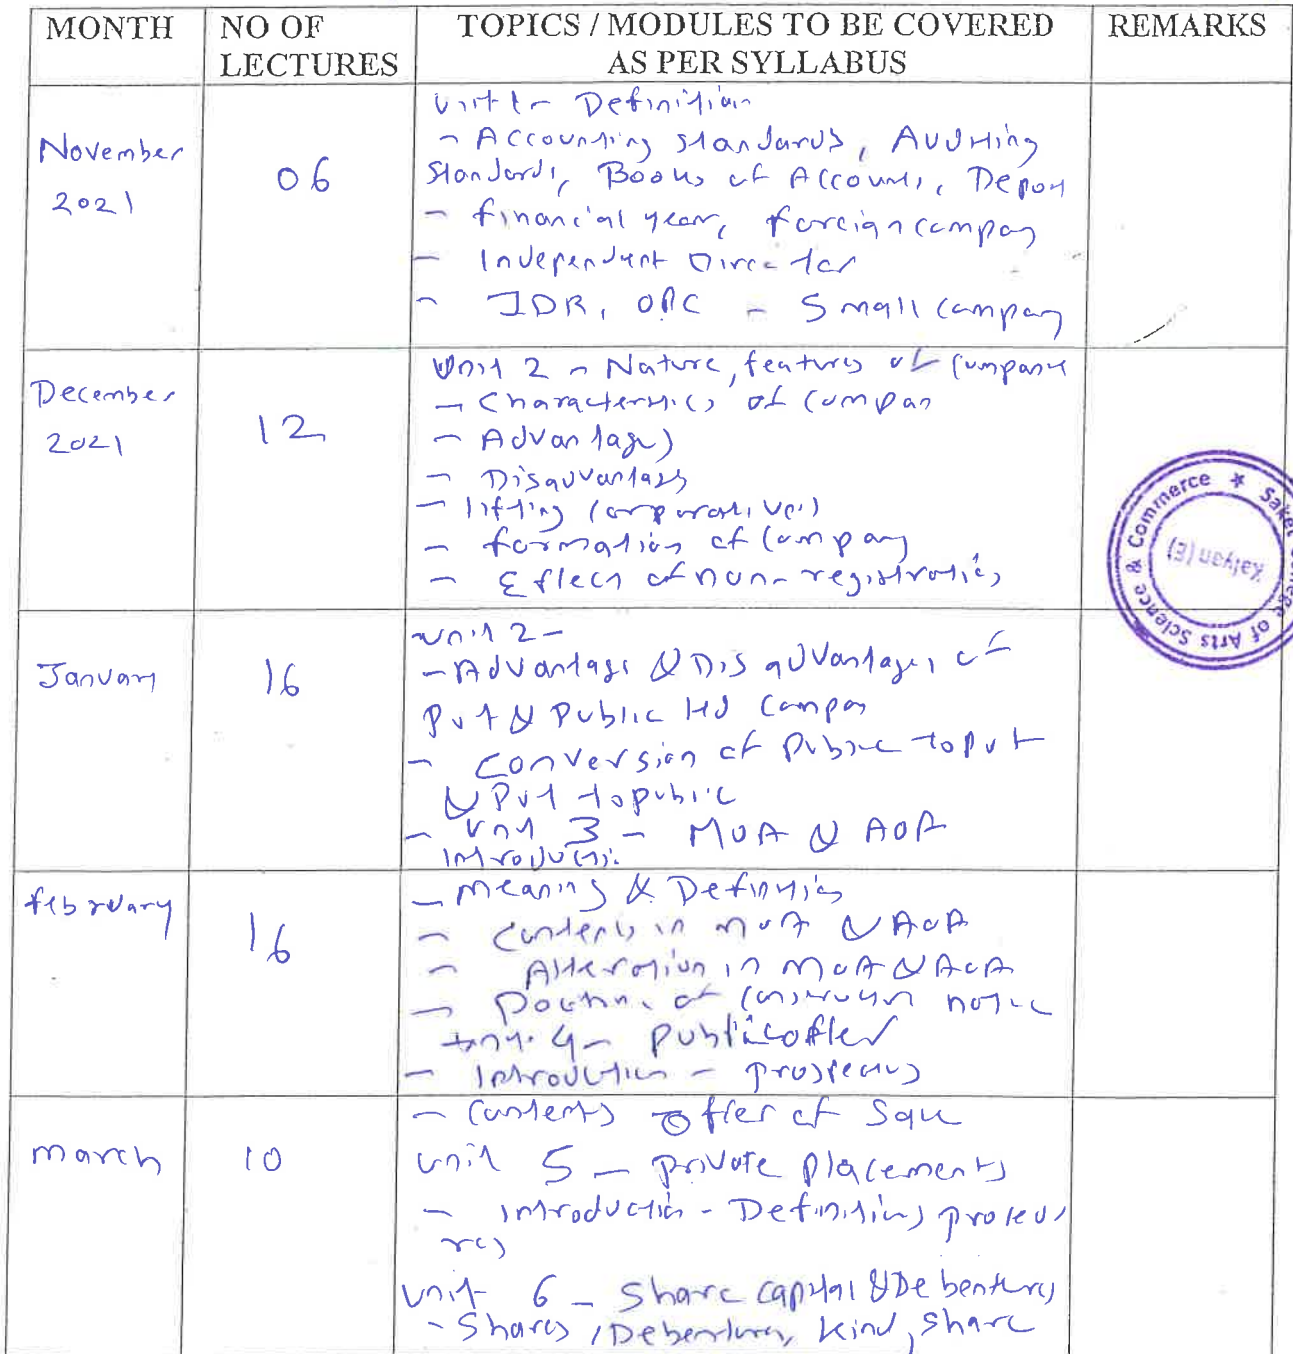 MONTH NO OF LECTURES TOPICS / MODULES TO BE COVERED AS PER SYLLABUS REMARKS
November 2021
06
Unit 1 - Definition
- Accounting standards, Auditing
Standards, Books of Accounts,
- financial year, foreign company
- Independent Director
- IDR, OPC - Small company
December 2021
12
Unit 2 - Nature, features of
- Characteristics of
- Advantages
- Disadvantages
- lifting corporate veil
- formation of company
- Effect of non-registration
January
16
Unit 2 -
- Advantages & Disadvantages of
Pvt & Public ltd
- Conversion of Public to Pvt
& Pvt to public
- Unit 3 - MOA & AOA
Introduction
february
16
- Meaning & Definition
- Contents in MOA & AOA
- Alteration in MOA & AOA
- Doctrine of constructive notice
Unit 4 - Public offer
- Introduction - prospectus
march
10
- Contents offer of
unit 5 - private placements
- introduction - Definitions
unit 6 - Share capital & Debentures
- Shares, Debentures, kind, share
Saket College of Arts Science & Commerce
Kalyan (E)